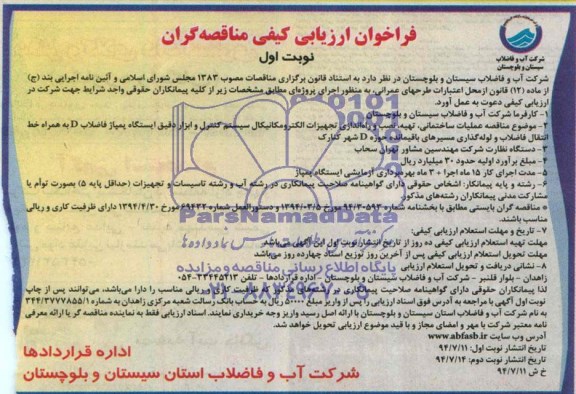 فراخوان ارزیابی کیفی مناقصه‌گران
نوبت اول
شرکت آب و فاضلاب
سیستان و بلوچستان
شرکت آب و فاضلاب سیستان و بلوچستان در نظر دارد به استناد قانون برگزاری مناقصات مصوب ۱۳۸۳ مجلس شورای اسلامی و آئین نامه اجرایی بند (ج)
از ماده (۱۲) قانون ازمحل اعتبارات طرحهای عمرانی، به منظور اجرای پروژه‌ای مطابق مشخصات زیر از کلیه پیمانکاران حقوقی واجد شرایط جهت شرکت در
ارزیابی کیفی دعوت به عمل آورد.
۱- کارفرما شرکت آب و فاضلاب سیستان و بلوچستان
۲- موضوع مناقصه عملیات ساختمانی، تهیه، نصب و راه‌اندازی تجهیزات الکترومکانیکال سیستم کنترل و ابزار دقیق ایستگاه پمپاژ فاضلاب D به همراه خط
انتقال فاضلاب و لوله‌گذاری مسیرهای باقیمانده حوزه D شهر کنارک
۳- دستگاه نظارت شرکت مهندسین مشاور تهران سحاب
۴- مبلغ برآورد اولیه حدود ۳۰ میلیارد ریال
۵- مدت اجرای کار ۱۵ ماه اجرا + ۳ ماه بهره‌برداری آزمایشی ایستگاه پمپاژ
۶- رشته و پایه پیمانکار: اشخاص حقوقی دارای گواهینامه صلاحیت پیمانکاری در رشته آب و رشته تاسیسات و تجهیزات (حداقل پایه ۵) بصورت توأم یا
مشارکت مدنی پیمانکاران رشته‌های مذکور
* مناقصه گران بایستی مطابق با بخشنامه شماره ۹۴/۳۰۵۹۳ مورخ ۱۳۹۴/۰۳/۵ و دستورالعمل شماره ۶۹۴۳۲ مورخ ۱۳۹۴/۴/۳۰ دارای ظرفیت کاری و ریالی
مناسب باشند.
۷- تاریخ و مهلت استعلام ارزیابی کیفی:
مهلت تهیه استعلام ارزیابی کیفی ده روز از تاریخ انتشار نوبت اول این آگهی می‌باشد
مهلت تحویل استعلام ارزیابی کیفی پس از آخرین روز توزیع اسناد چهارده روز می‌باشد
۸- نشانی دریافت و تحویل استعلام ارزیابی
زاهدان - بلوار قلنبر - شرکت آب و فاضلاب سیستان و بلوچستان - اداره قراردادها - تلفن ۳۳۴۴۵۴۱۳-۰۵۴
لذا پیمانکاران حقوقی دارای گواهینامه صلاحیت پیمانکاری در رشته‌های مذکور که ظرفیت کاری و ریالی مناسب را دارا می‌باشند، می‌توانند پس از چاپ
نوبت اول آگهی با مراجعه به آدرس فوق اسناد ارزیابی را پس از واریز مبلغ ریال به حساب بانک رسالت شعبه مرکزی زاهدان به شماره ۳۴۴/۳۷۷۷۸۵۵/۱
به نام شرکت آب و فاضلاب استان سیستان و بلوچستان با ارائه اصل رسید واریز وجه خریداری نمایند. اسناد ارزیابی فقط به نماینده مناقصه گر با ارائه معرفی
نامه معتبر شرکت با مهر و امضای مجاز و با قید موضوع ارزیابی تحویل خواهد شد.
آدرس وب سایت www.abfasb.ir
تاریخ انتشار نوبت اول: ۹۴/۷/۱۱
تاریخ انتشار نوبت دوم: ۹۴/۷/۱۴
خ ش ۹۴/۷/۱۱
اداره قراردادها
شرکت آب و فاضلاب استان سیستان و بلوچستان
ParsNamadData
پایگاه اطلاع رسانی مناقصه و مزایده